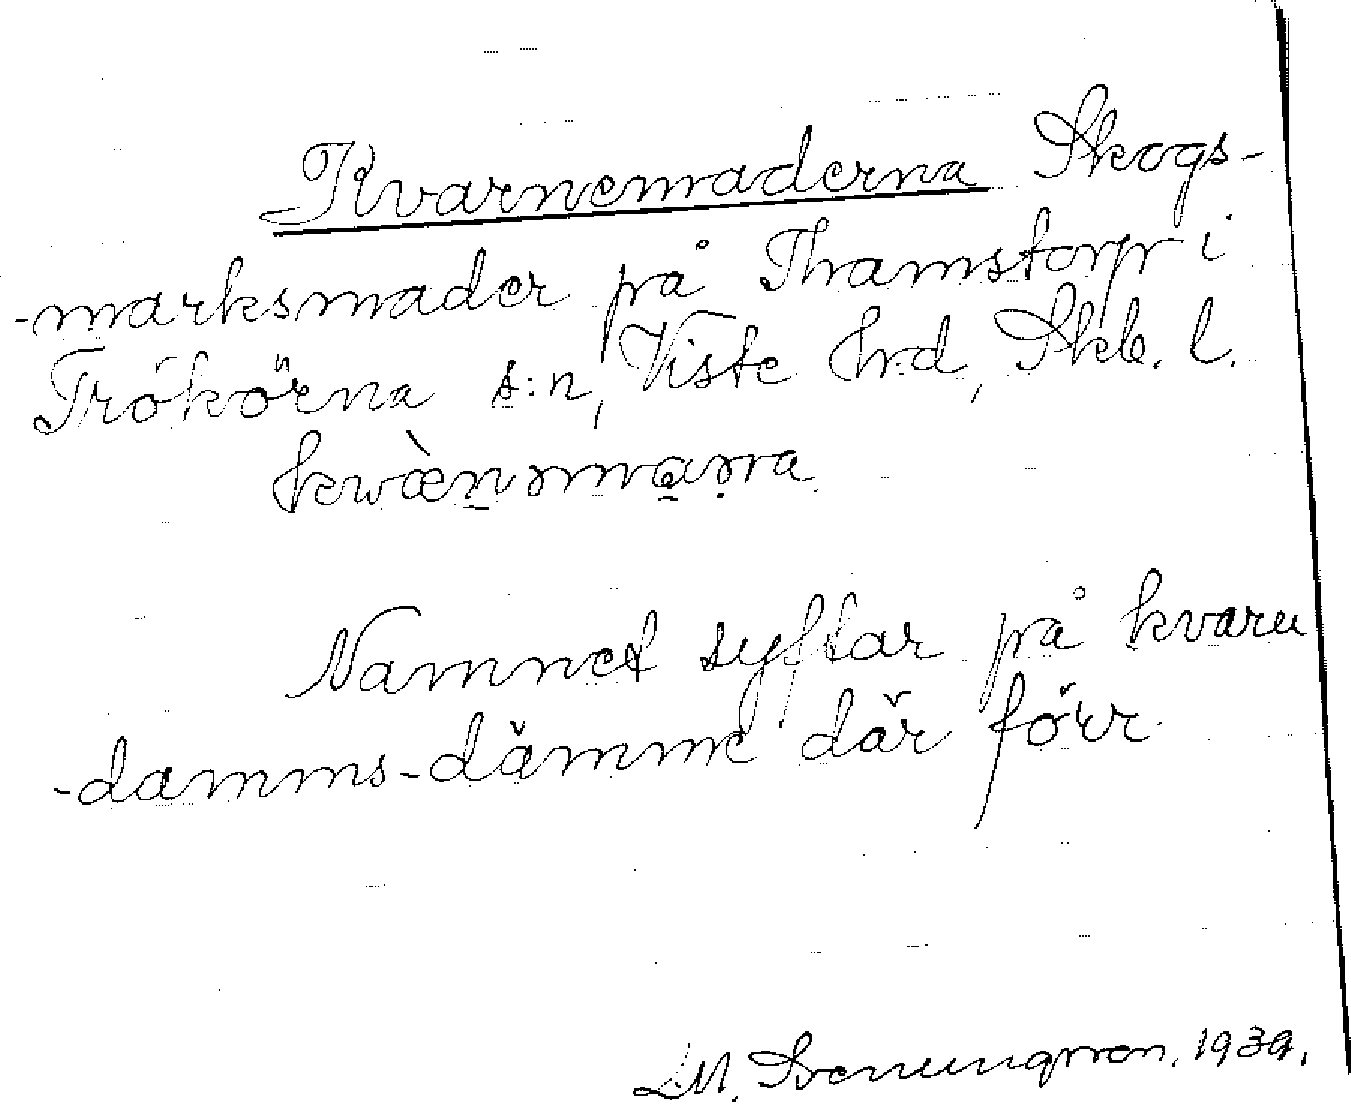 Kvarnemaderna Skogs-
-marksmader på Thamstorp i
Trökörna s:n, Viste hrd, Skb. l.
kwæ̀nmana
Namnet syftar på kvarn
-damms-dämme där förr
1939.